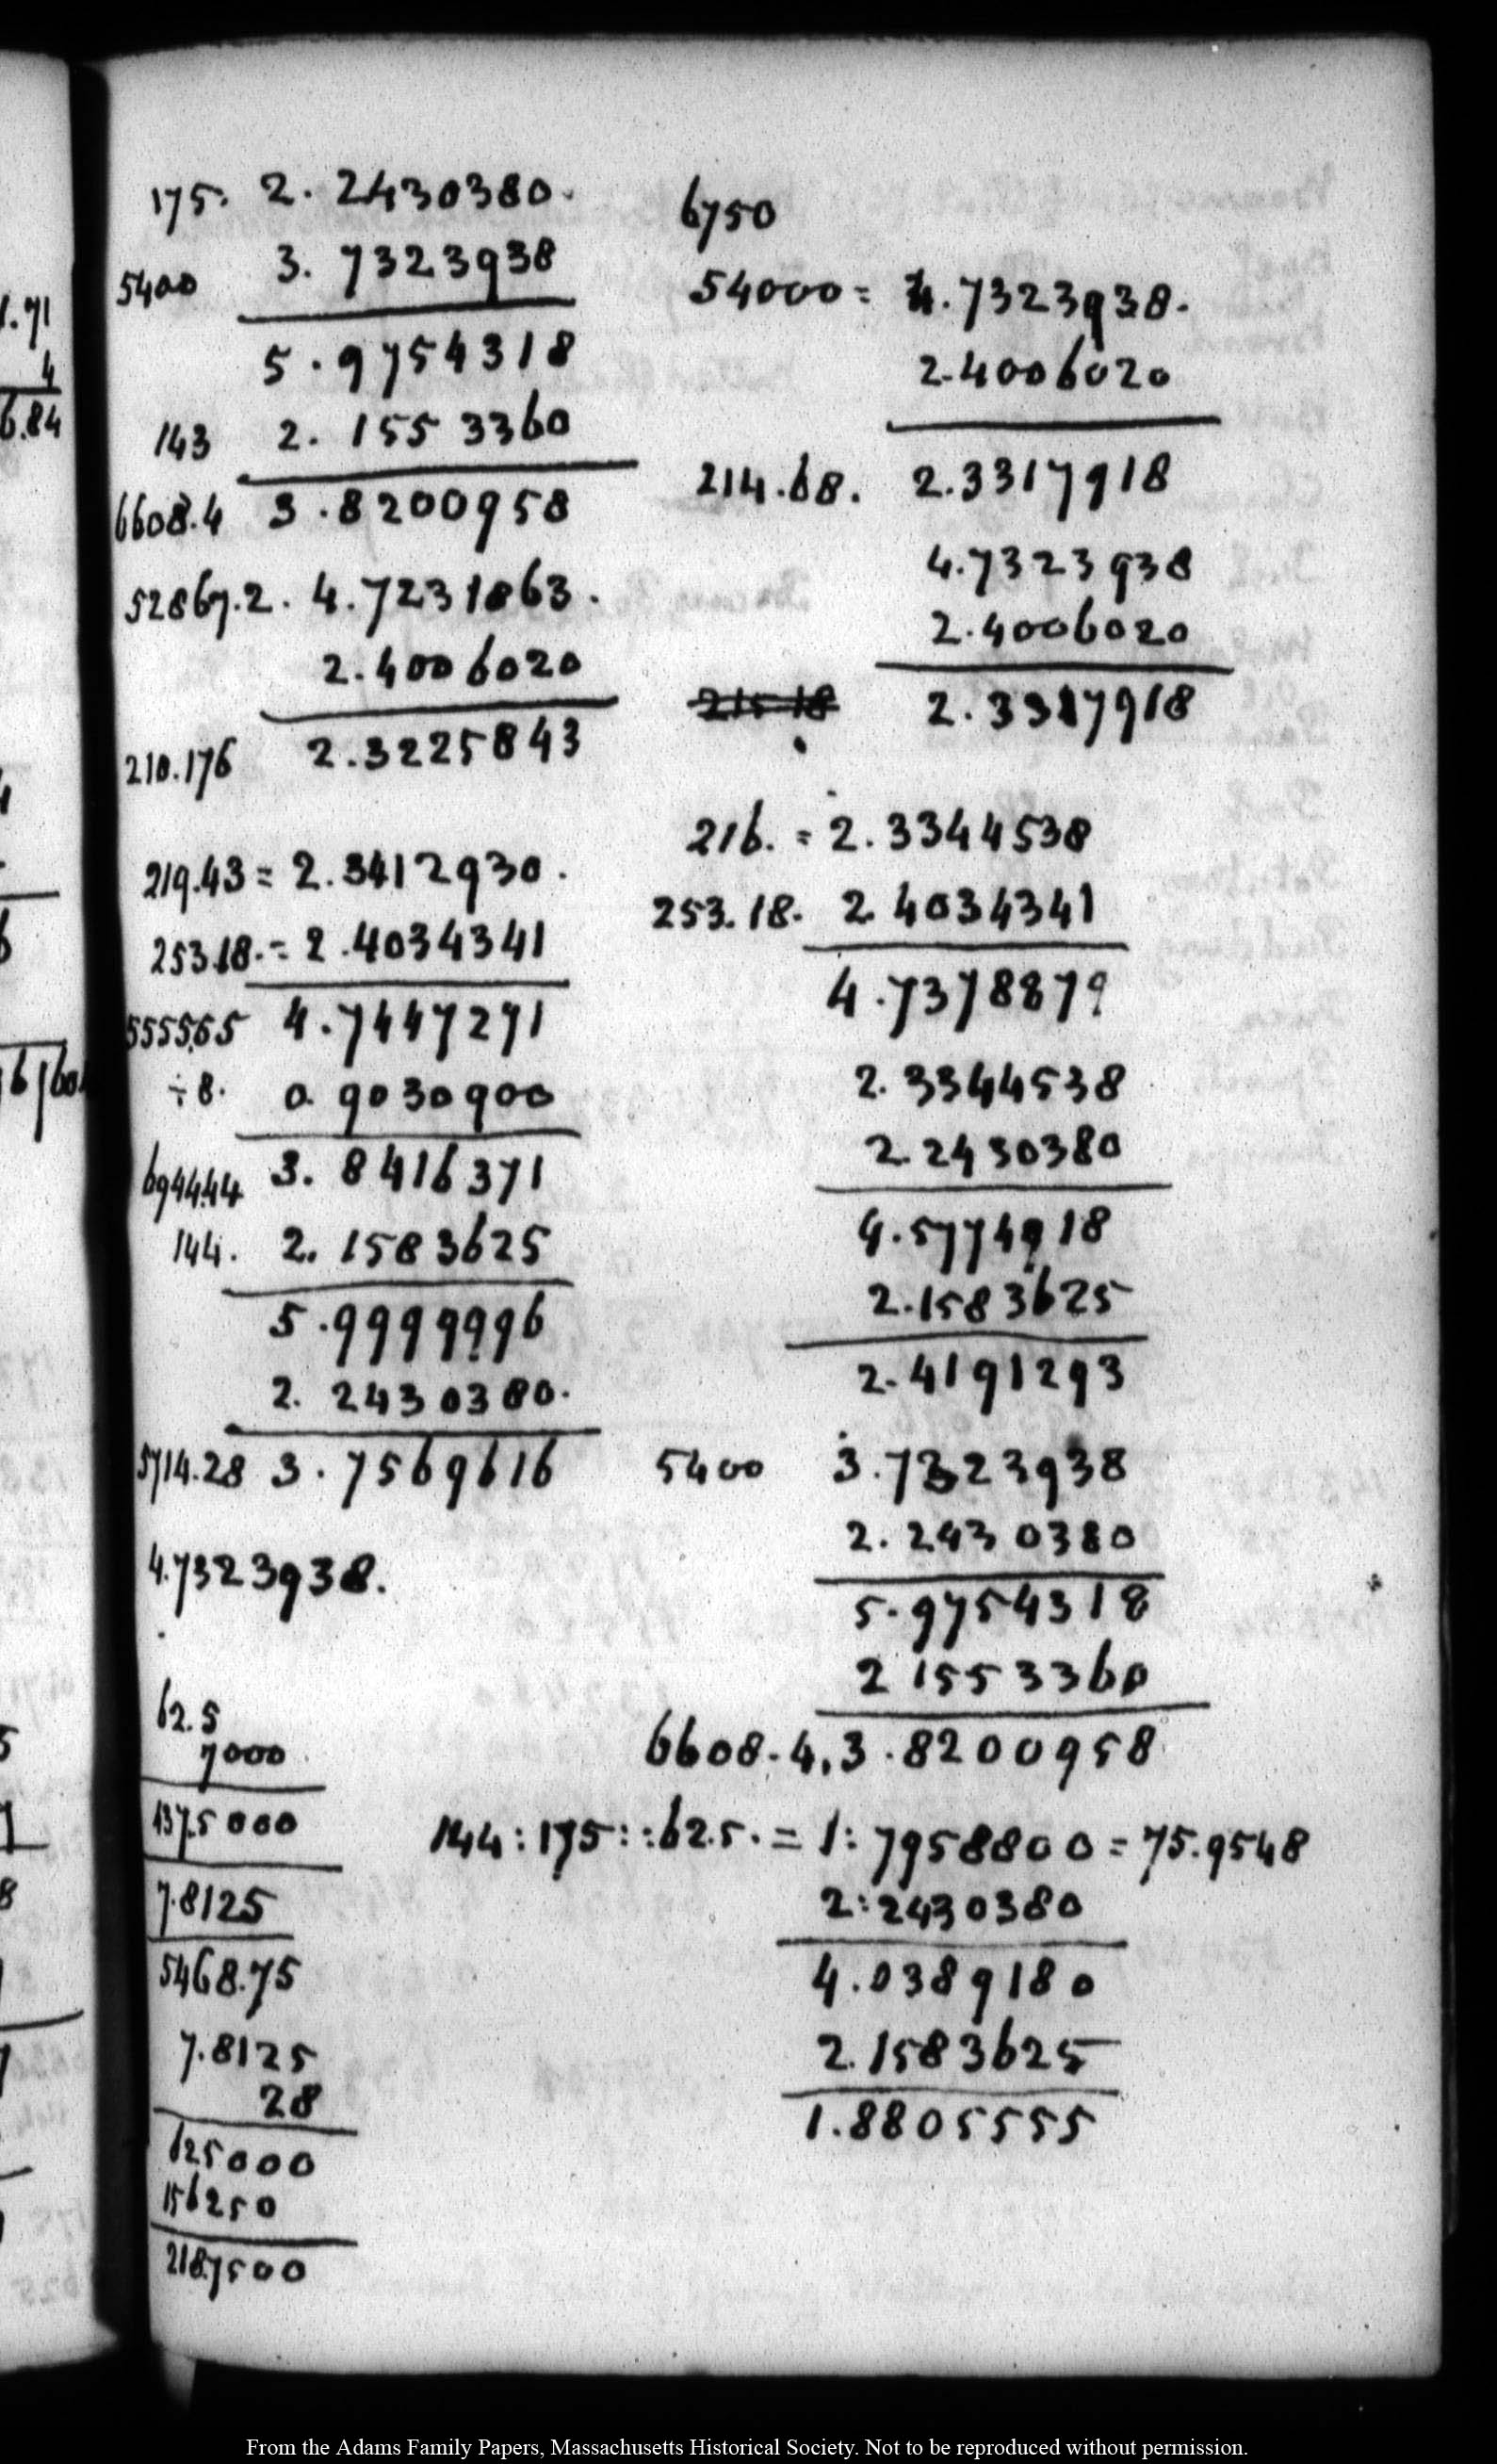 175. 2. 2430380.
5400 3. 7323938
5. 9754318
143 2. 1553360
6608.4 3.8200958
52867.2. 4.7231863.
2.4006020
210.176 2.3225843
219.43 = 2.3412930.
253.18. = 2.4034341
55556.5 4.7447271
÷ 8. 0. 9030900
6944.44 3. 8416371
144. 2. 1583625
5.9999996
2. 2430380.
5714.28 3.7569616
4.7323938.
62.5
7000
437.5000
7.8125
5468.75
7.8125
28
625000
156250
218.7500
6750
54000 = 4.7323938.
2.4006020
214.68. 2.3317918
4.7323938
2.4006020
215 18 2.3317918
216. = 2.3344538
253.18. 2.4034341
4.7378879
2.3344538
2.2430380
4.5774918
2.1583625
2.4191293
5400 3.7323938
2. 2430380
5.9754318
2 1553360
6608.4. 3.8200958
144 : 175 : : 62.5. = 1: 7958800 = 75.9548
2:2430380
4.0389180
2.1583625
1.8805555
1.71
4
6.84
From the Adams Family Papers, Massachusetts Historical Society. Not to be reproduced without permission.